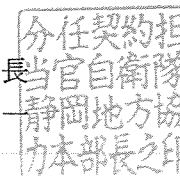 分任契約担
当官自衛隊
静岡地方協
力本部長之印
長
一